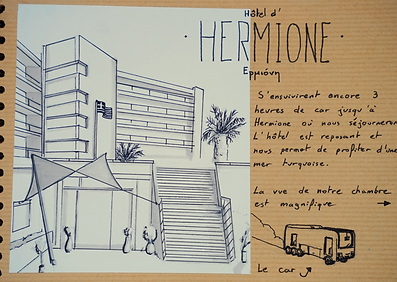 Hôtel d'
· HERMIONE ·
Ερμιόνη
S'ensuivirent encore 3
heures de car jusqu'à
Hermione où nous séjournerons
L'hôtel est reposant et
nous permet de profiter d'une
mer turquoise.
La vue de notre chambre
est magnifique →
Le car